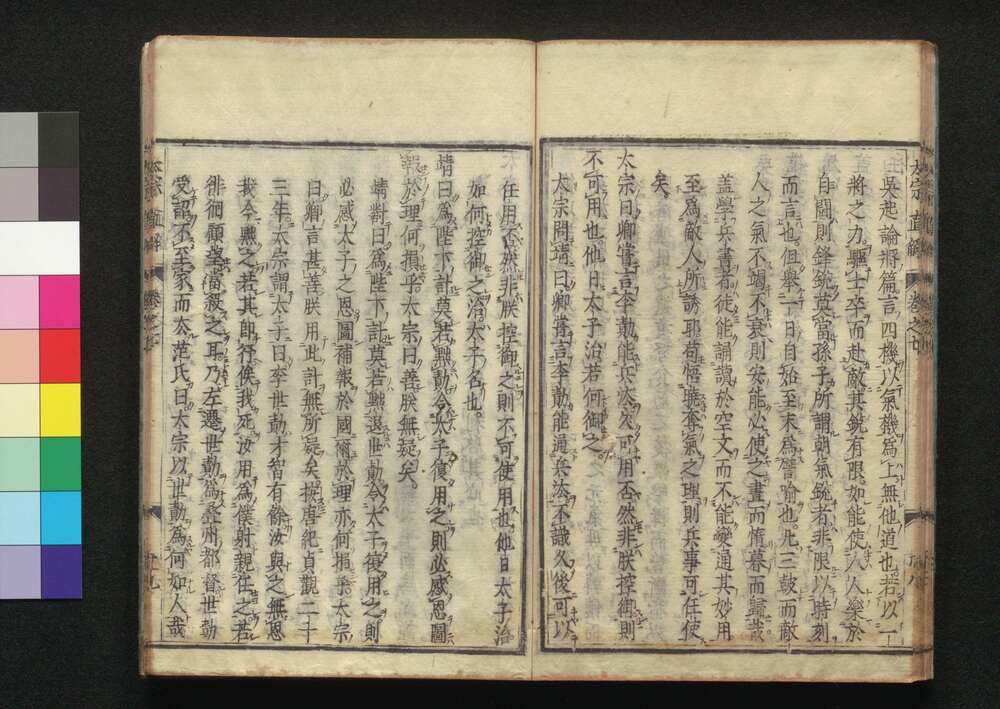 吳起論將篇言四機以氣機爲上無他道也若以一
將之力驅士卒而赴敵其銳有限如能使人人樂於
自鬪則鋒銳莫當孫子所謂朝氣銳者非限以時刻
而言也但舉一日自始至末爲譬喻也凡三鼓而敵
人之氣不竭不衰則安能必使之晝而惰暮而歸哉
蓋學兵書者徒能誦讀於空文而不能變通其妙用
至爲敵人所誘耶苟悟曉奪氣之理則兵事可任使
矣
太宗曰卿嘗言李勣能兵法久可用否然非朕控御則
不可用也他日太子治若何御之
太宗問靖曰卿嘗言李勣能通兵法不識久後可以
任用否然非朕控御之則不可使用也他日太子治
如何控御之治太子名也。
靖曰爲陛下計莫若黜勣令太子復用之則必感恩圖
報於理何損乎太宗曰善朕無疑矣。
靖對曰爲陛下計莫若黜退世勣令太子復用之則
必感太子之恩圖補報於國爾於理亦何損乎太宗
曰卿言甚善朕用此計無所疑矣按唐紀貞觀二十
三年太宗謂太子曰李世勣才智有餘汝與之無恩
我今黜之若其即行俟我死汝用爲僕射親任之若
徘徊顧望當殺之耳乃左遷世勣爲疊州都督世勣
受詔不至家而去范氏曰太宗以世勣爲何如人哉